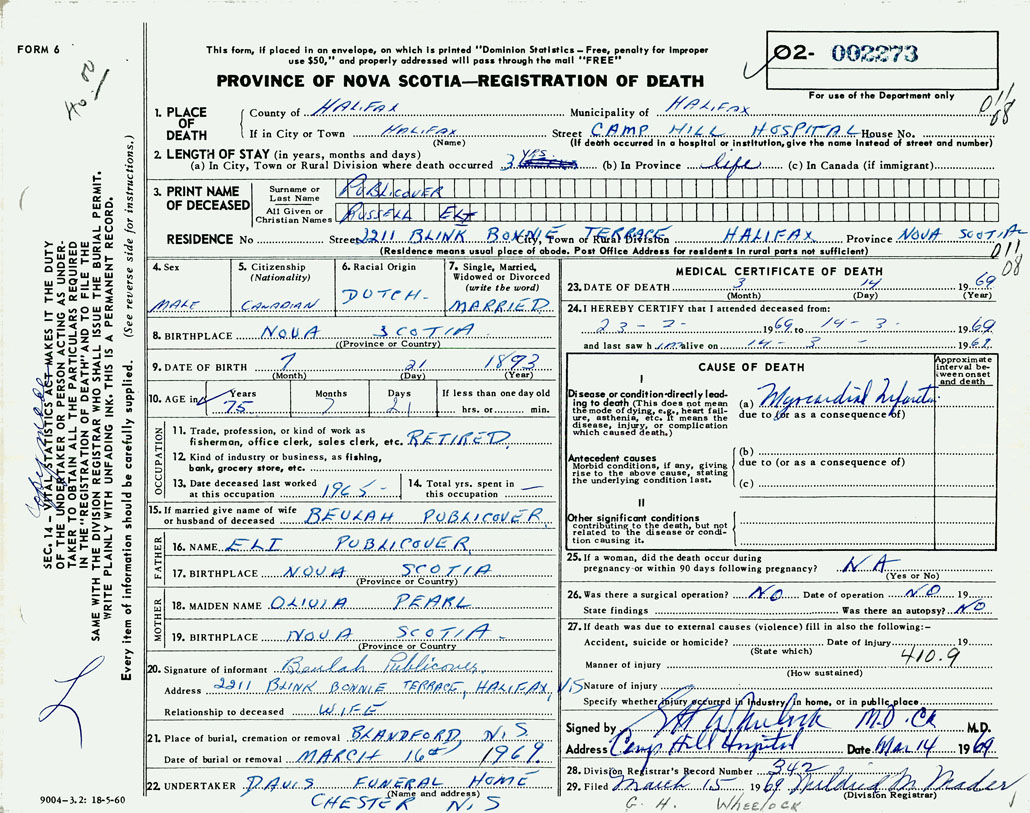 FORM 6
This form, if placed in an envelope, on which is printed "Dominion Statistics – Free, penalty for improper
use $50," and properly addressed will pass through the mail "FREE"
02- 002273
PROVINCE OF NOVA SCOTIA—REGISTRATION OF DEATH
For use of the Department only
40.00
011
08
1. PLACE OF DEATH
County of HALIFAX Municipality of HALIFAX
If in City or Town HALIFAX Street CAMP HILL HOSPITAL House No.
(Name) (If death occurred in a hospital or institution, give the name instead of street and number)
2. LENGTH OF STAY (in years, months and days)
(a) In City, Town or Rural Division where death occurred 3 YRS. (b) In Province life (c) In Canada (if immigrant)
3. PRINT NAME OF DECEASED
Surname or Last Name PUBLICOVER
All Given or Christian Names RUSSELL ELI
RESIDENCE No Street 2211 BLINK BONNIE TERRACE City, Town or Rural Division HALIFAX Province NOVA SCOTIA
(Residence means usual place of abode. Post Office Address for residents in rural parts not sufficient)
011
08
4. Sex
MALE
5. Citizenship (Nationality)
CANADIAN
6. Racial Origin
DUTCH-
7. Single, Married, Widowed or Divorced (write the word)
MARRIED
8. BIRTHPLACE NOVA SCOTIA
((Province or Country)
9. DATE OF BIRTH 7 21 1893
(Month) (Day) (Year)
10. AGE in Years Months Days If less than one day old
75 7 21 hrs. or min.
OCCUPATION
11. Trade, profession, or kind of work as
fisherman, office clerk, sales clerk, etc. RETIRED
12. Kind of industry or business, as fishing,
bank, grocery store, etc.
13. Date deceased last worked at this occupation 1965-
14. Total yrs. spent in this occupation —
15. If married give name of wife
or husband of deceased BEULAH PUBLICOVER
FATHER
16. NAME ELI PUBLICOVER
17. BIRTHPLACE NOVA SCOTIA
(Province or Country)
MOTHER
18. MAIDEN NAME OLIVIA PEARL
19. BIRTHPLACE NOVA SCOTIA -
(Province or Country
20. Signature of informant Beulah Publicover
Address 2211 BLINK BONNIE TERRACE, HALIFAX, N.S
Relationship to deceased WIFE
21. Place of burial, cremation or removal BLANDFORD, N.S
Date of burial or removal MARCH 16th, 1969.
22. UNDERTAKER DAVIS FUNERAL HOME
(Name and address)
CHESTER N.S
MEDICAL CERTIFICATE OF DEATH
23. DATE OF DEATH 3 14 1969
(Month) (Day) (Year)
24. I HEREBY CERTIFY that I attended deceased from:
23-2- 1969 to 14-3- 1969
and last saw him alive on 14-3- 1969.
CAUSE OF DEATH
Approximate interval between onset and death
I
Disease or condition directly leading to death (This does not mean the mode of dying, e.g., heart failure, asthenia, etc. It means the disease, injury, or complication which caused death.)
(a) Myocardial Infarction
due to (or as a consequence of)
Antecedent causes
Morbid conditions, if any, giving rise to the above cause, stating the underlying condition last.
(b)
due to (or as a consequence of)
(c)
II
Other significant conditions
contributing to the death, but not related to the disease or condition causing it.
25. If a woman, did the death occur during
pregnancy or within 90 days following pregnancy? NA
(Yes or No)
26. Was there a surgical operation? NO Date of operation NO 19
State findings Was there an autopsy? NO
27. If death was due to external causes (violence) fill in also the following:-
Accident, suicide or homicide? Date of injury 19
(State which)
410.9
Manner of injury
(How sustained)
Nature of injury
Specify whether injury occurred in Industry, in home, or in public place
Signed by M.D. M.D.
Address Camp Hill Hospital Date Mar 14 1969
28. Division Registrar's Record Number 342
29. Filed March 15 1969 Mildred M. Mader
(Division Registrar)
G. H. WHEELOCK
SEC. 14 – VITAL STATISTICS ACT MAKES IT THE DUTY
OF THE UNDERTAKER OR PERSON ACTING AS UNDER-
TAKER TO OBTAIN ALL THE PARTICULARS REQUIRED
IN THE "REGISTRATION OF DEATH" AND TO FILE THE
SAME WITH THE DIVISION REGISTRAR WHO SHALL ISSUE THE BURIAL PERMIT.
WRITE PLAINLY WITH UNFADING INK. THIS IS A PERMANENT RECORD.
Every item of information should be carefully supplied. (See reverse side for instructions.)
9004-3.2: 18-5-60